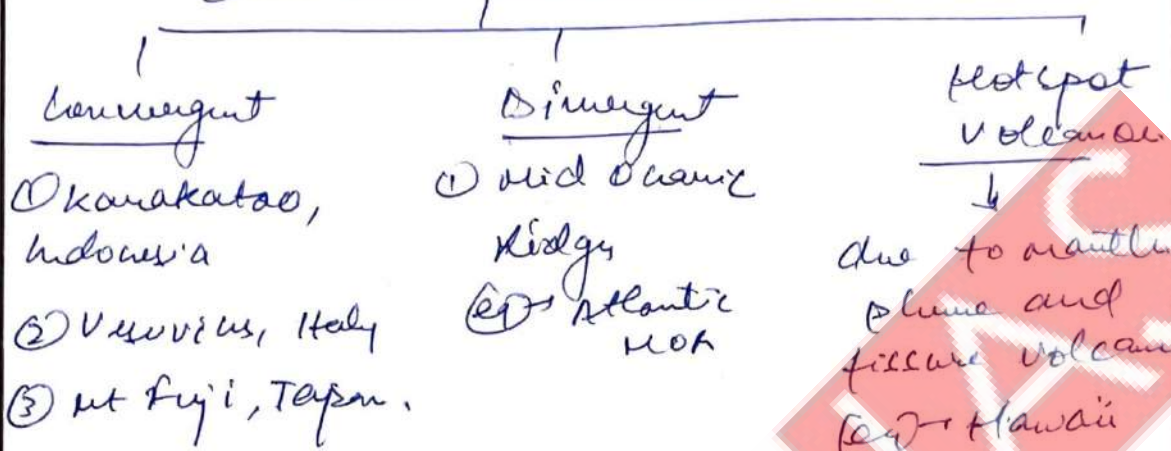 Convergent
① Karakatao,
Indonesia
② Vesuvius, Italy
③ Mt Fuji, Japan.
Divergent
① Mid Oceanic
Ridges
(eg)→ Atlantic
MOR
Hotspot
Volcanoe
due to mantle
plume and
fissure volcan
(eg)→ Hawaii